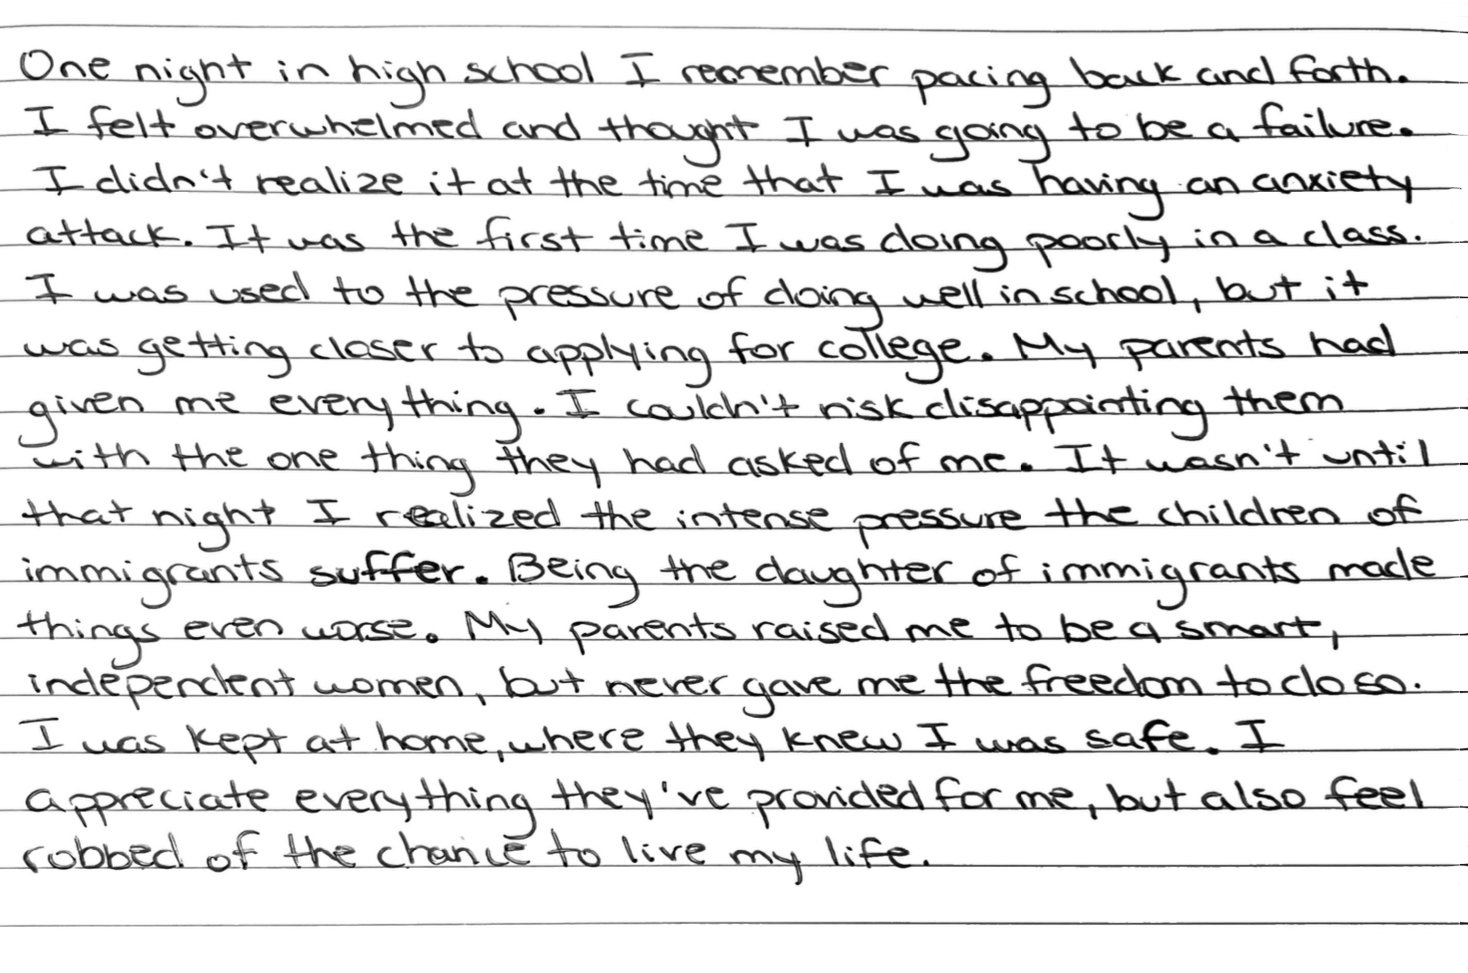 One night in high school I remember pacing back and forth.
I felt overwhelmed and thought I was going to be a failure.
I didn't realize it at the time that I was having an anxiety
attack. It was the first time I was doing poorly in a class.
I was used to the pressure of doing well in school, but it
was getting closer to applying for college. My parents had
given me everything. I couldn't risk disappointing them
with the one thing they had asked of me. It wasn't until
that night I realized the intense pressure the children of
immigrants suffer. Being the daughter of immigrants made
things even worse. My parents raised me to be a smart,
independent women, but never gave me the freedom to do so.
I was kept at home, where they knew I was safe. I
appreciate everything they've provided for me, but also feel
robbed of the chance to live my life.